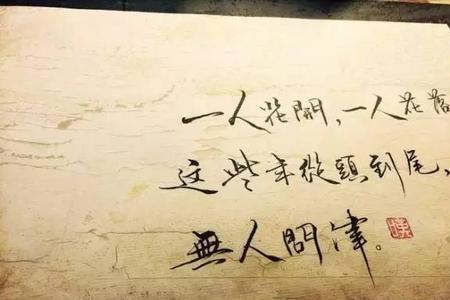 一人花開，一人花落
这些年從頭到尾，
無人問津。